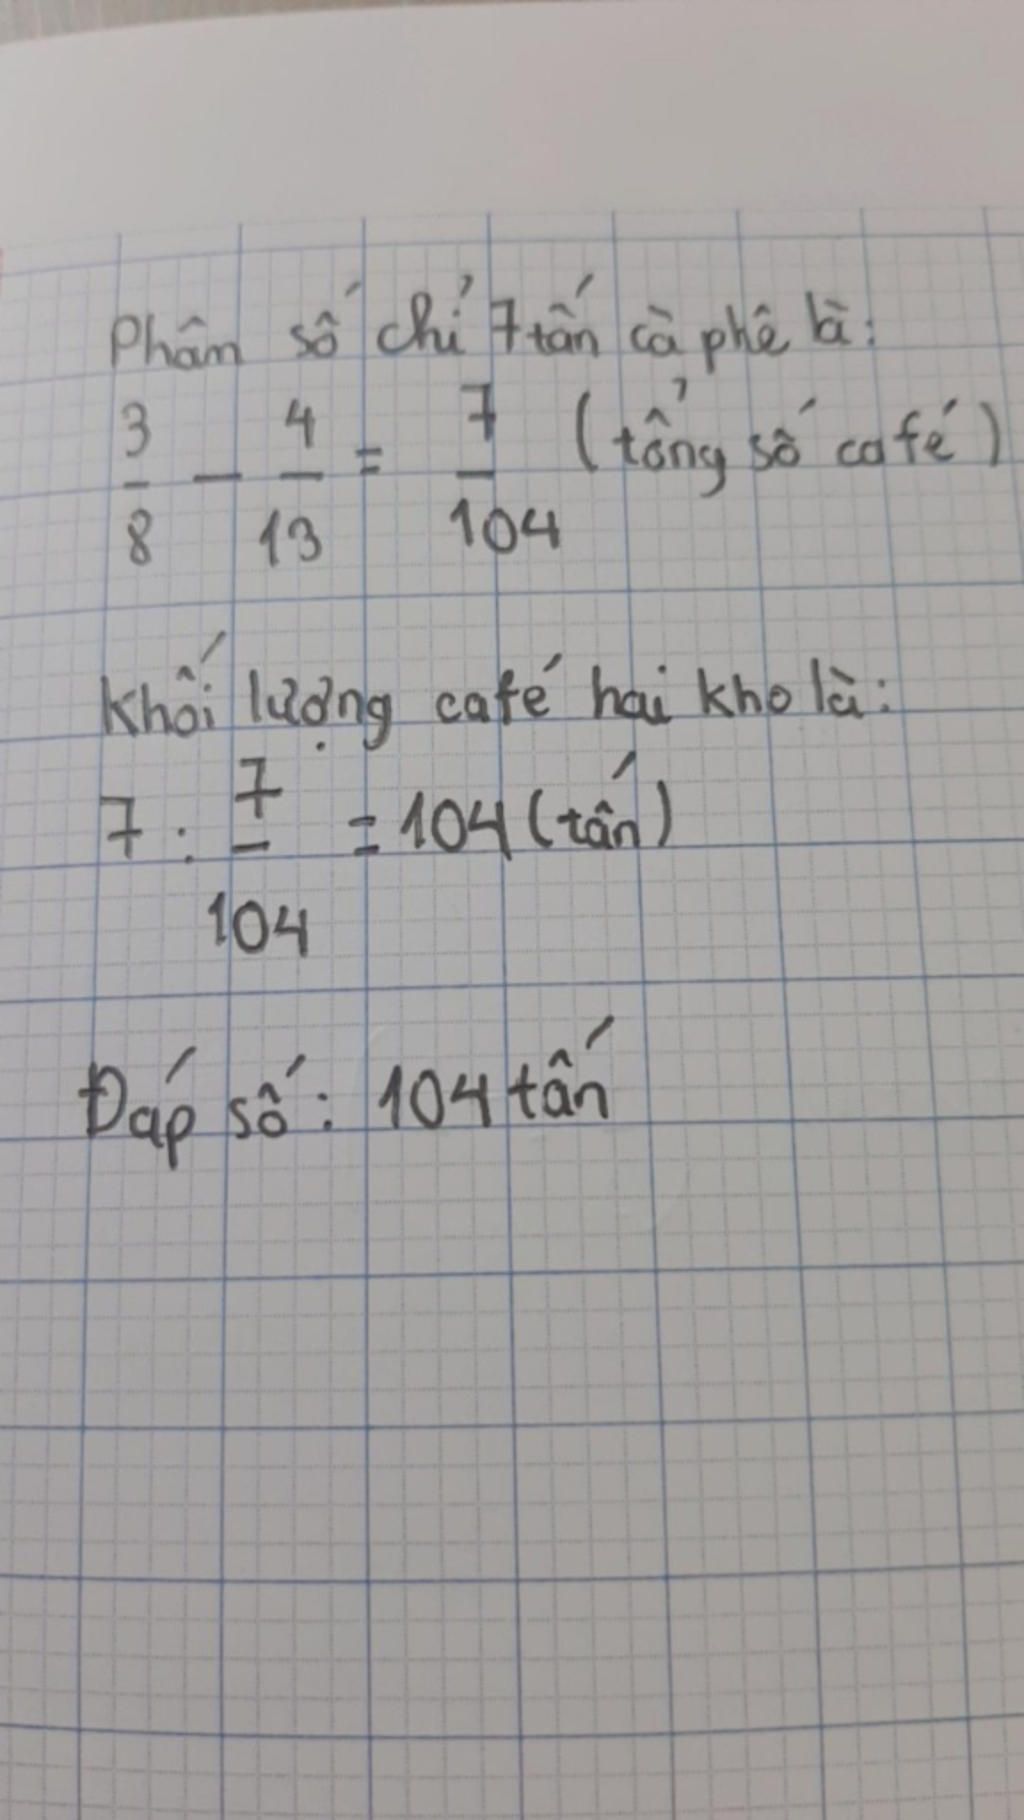 Phân số chỉ 7 tấn cà phê là:
3/8 - 4/13 = 7/104 (tổng số café)
Khối lượng café hai kho là:
7 : 7/104 = 104 (tấn)
Đáp số: 104 tấn